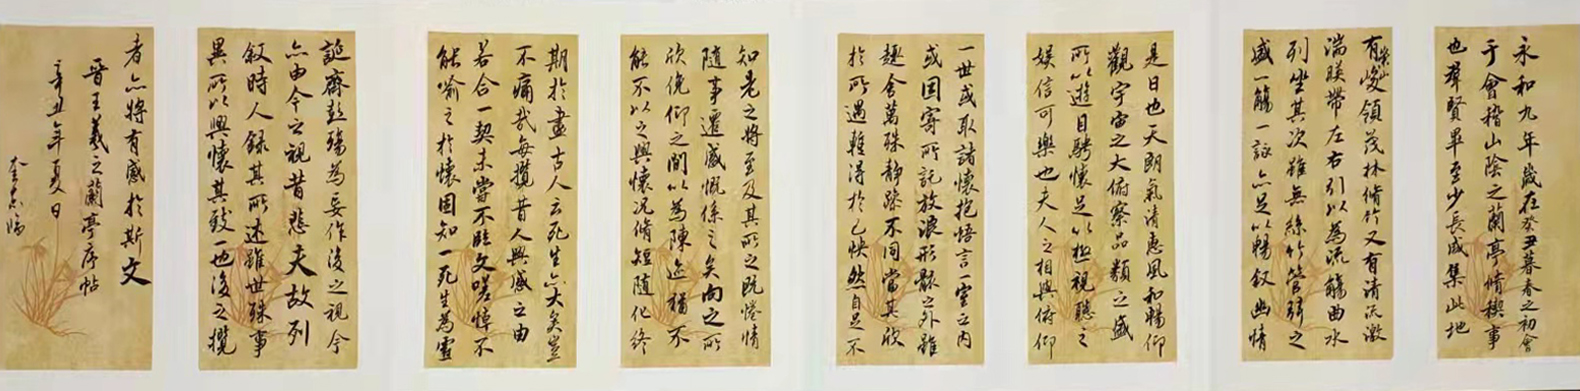 永和九年歲在癸丑暮春之初會
于會稽山陰之蘭亭脩禊事
也羣賢畢至少長咸集此地
有崇山峻領茂林脩竹又有清流激
湍暎帶左右引以為流觴曲水
列坐其次雖無絲竹管弦之
盛一觴一詠亦足以暢叙幽情
是日也天朗氣清惠風和暢仰
觀宇宙之大俯察品類之盛
所以遊目騁懷足以極視聽之
娛信可樂也夫人之相與俯仰
一世或取諸懷抱悟言一室之內
或因寄所託放浪形骸之外雖
趣舍萬殊静躁不同當其欣
於所遇暫得於己怏然自足不
知老之將至及其所之既惓情
隨事遷感慨係之矣向之所
欣俛仰之間以為陳迹猶不
能不以之興懷況脩短隨化終
期於盡古人云死生亦大矣豈
不痛哉每攬昔人興感之由
若合一契未嘗不臨文嗟悼不
能喻之於懷固知一死生為虛
誕齊彭殤為妄作後之視今
亦由今之視昔悲夫故列
叙時人錄其所述雖世殊事
異所以興懷其致一也後之攬
者亦將有感於斯文
晉王羲之蘭亭序帖
辛丑年夏日
臨